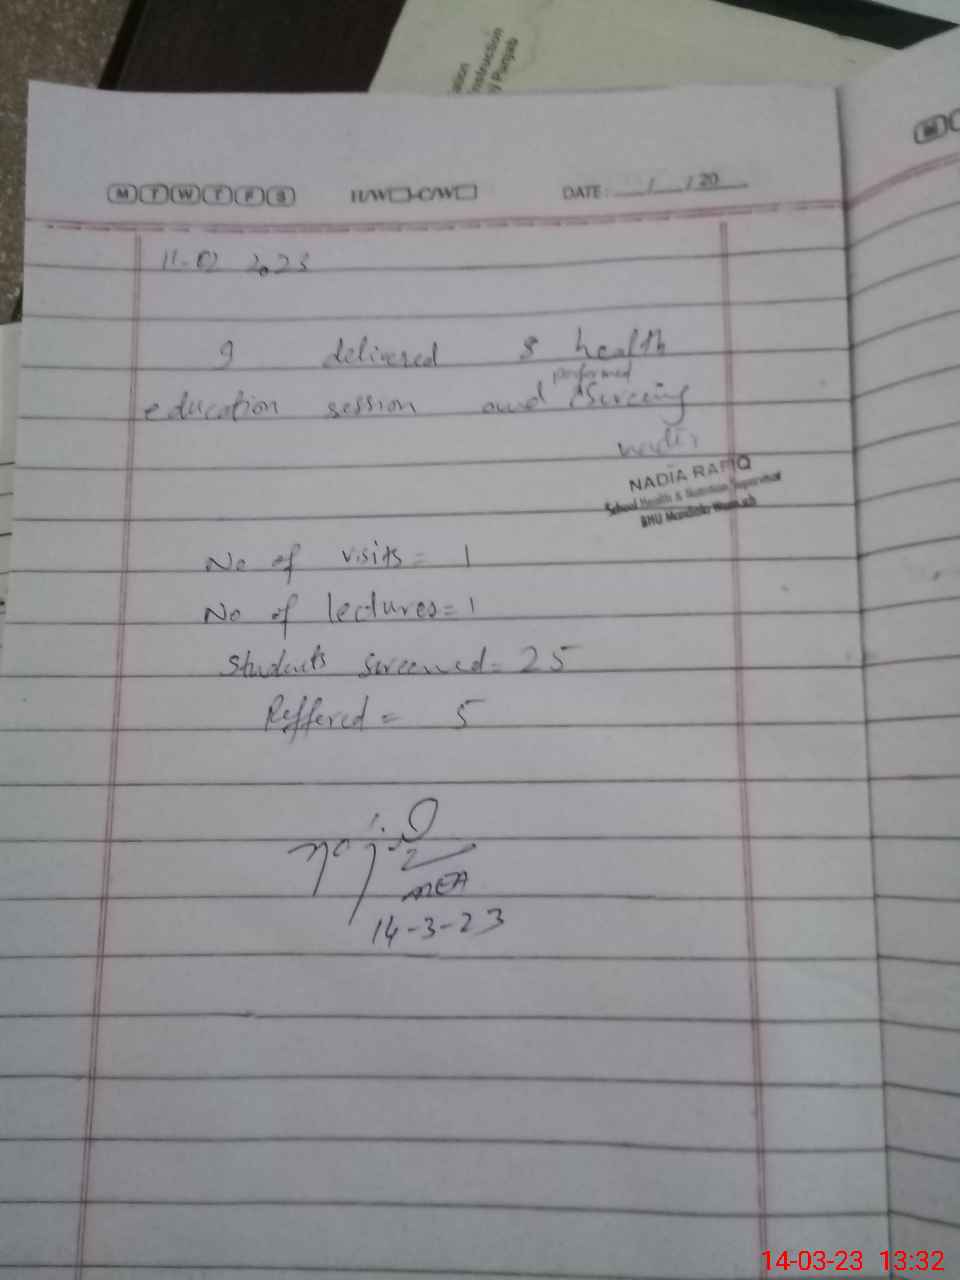 nstruction
y Punjab
M T W T F S
H/W C/W
DATE: / / 20
2023
I delivered & health
performed
education session and Screeing
NADIA RAFIQ
School Health & Nutrition Supervisor
BHU
No of visits = 1
No of lectures = 1
Students screened = 25
Reffered = 5
MEA
14-3-23
14-03-23 13:32